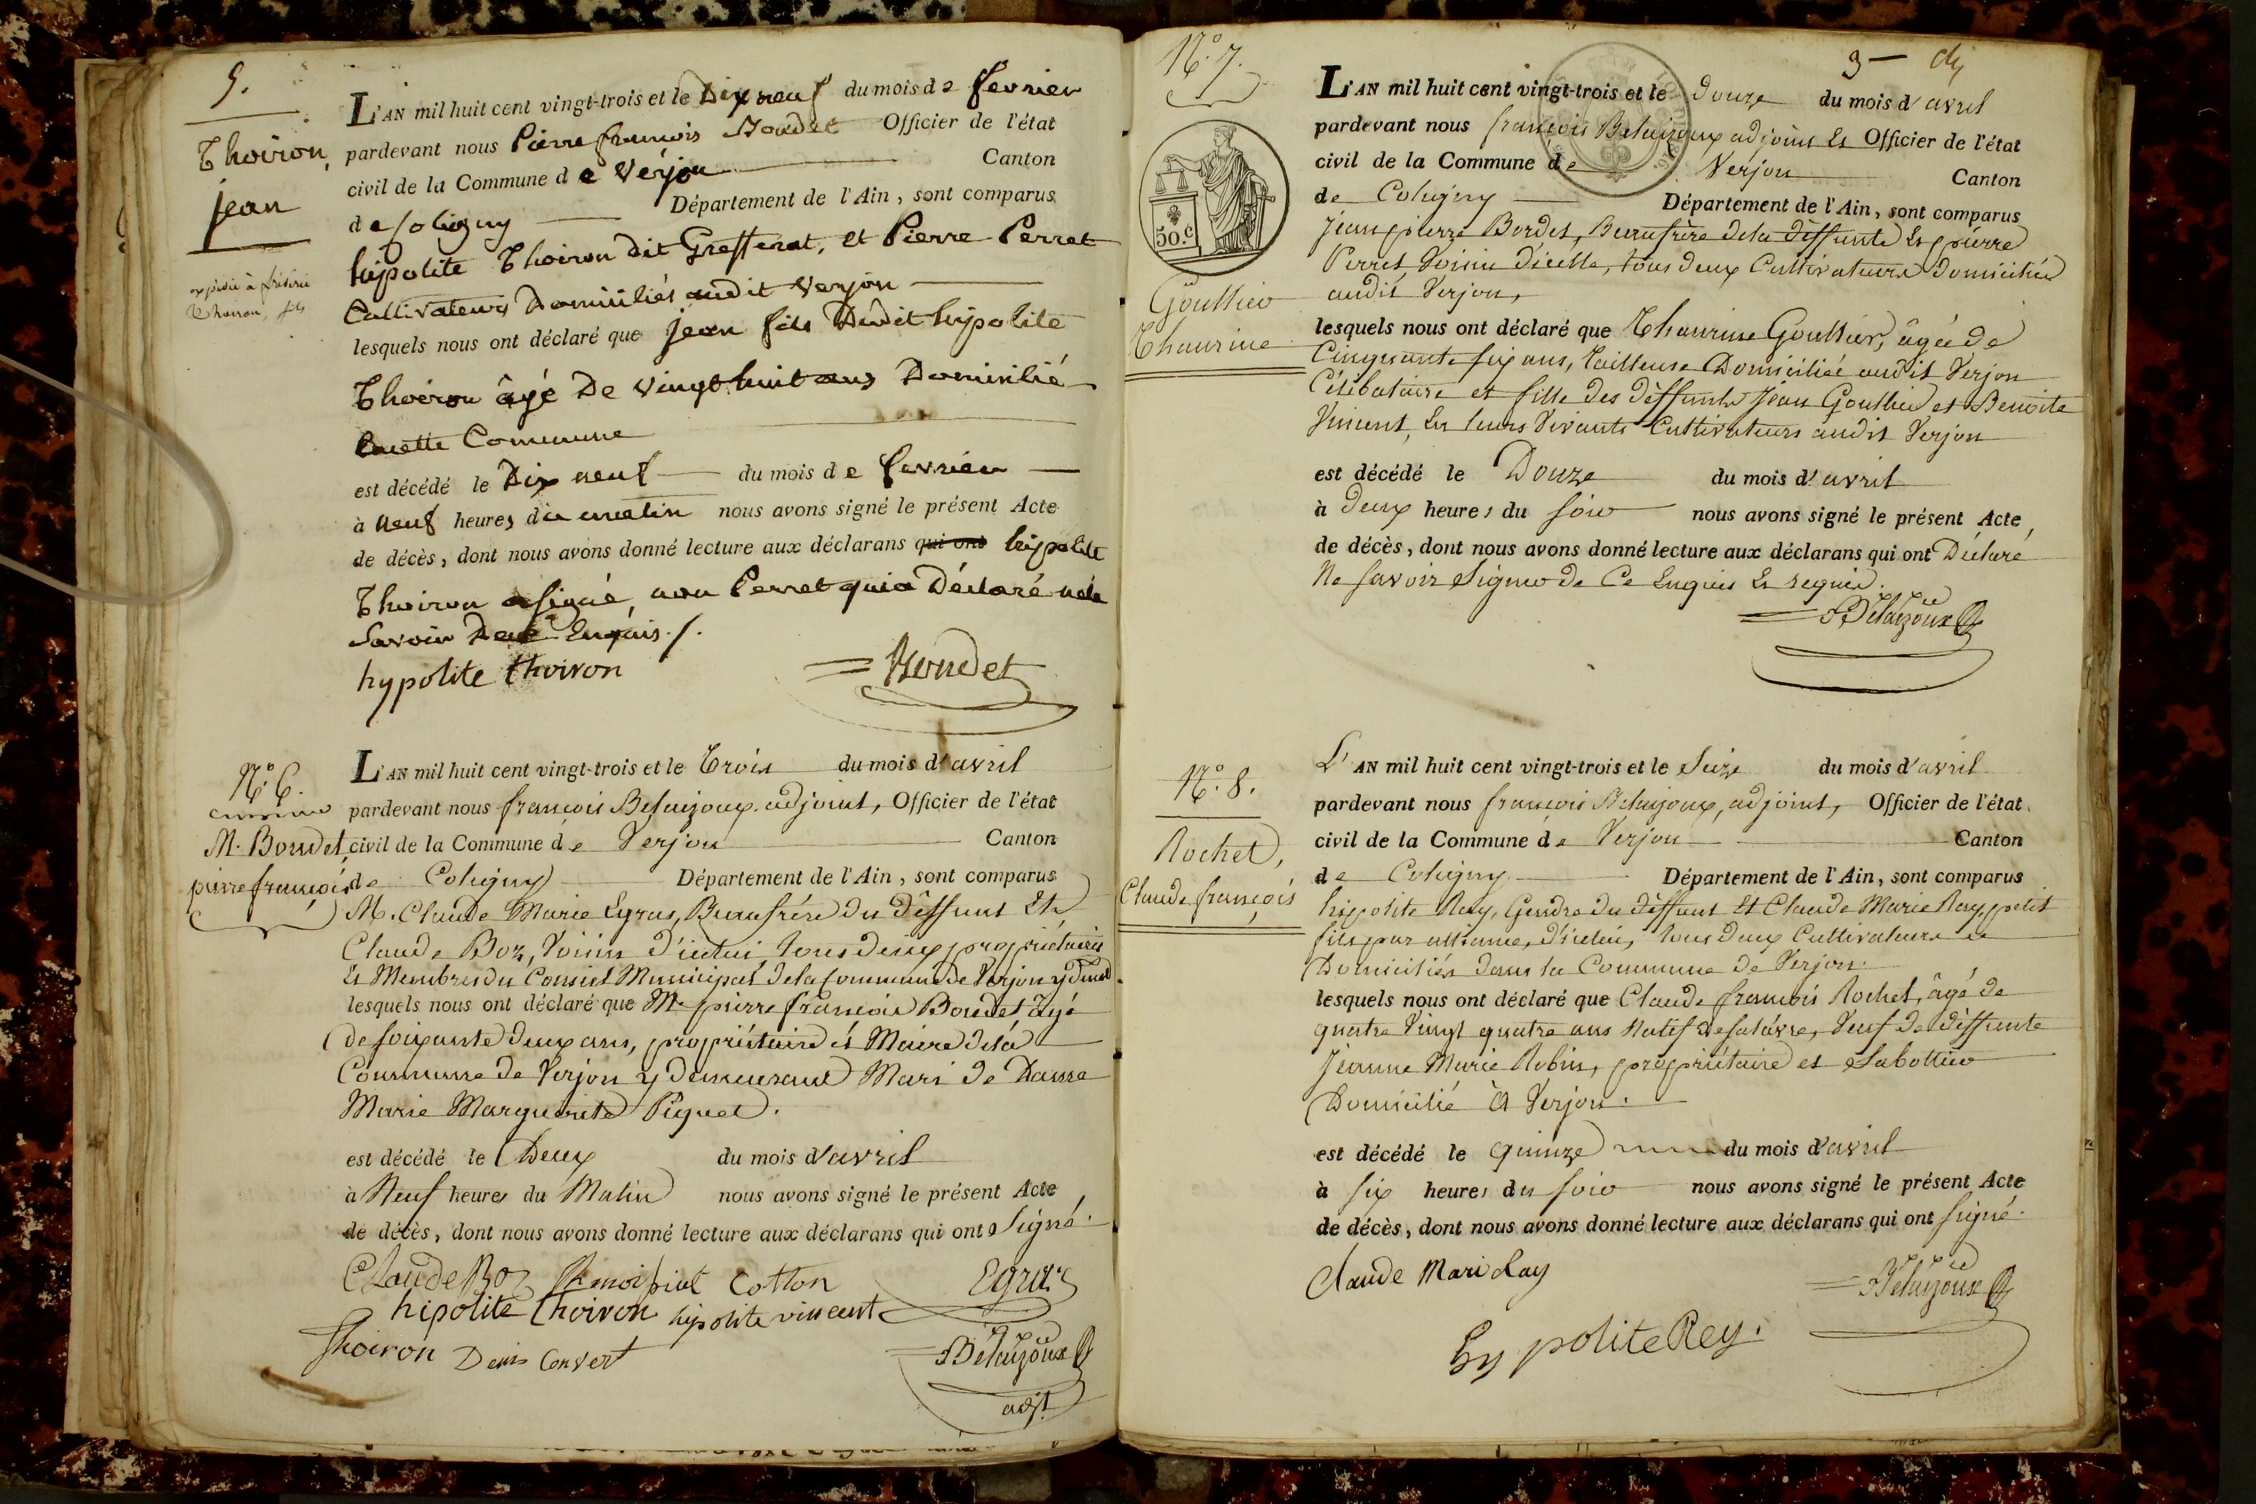 5.
Thoiron,
jean
expédié à
Thoiron, fils
L'AN mil huit cent vingt-trois et le Dix neuf du mois de fevrier
pardevant nous Pierre françois Boudet Officier de l'état
civil de la Commune de Verjon Canton
de Coligny Département de l'Ain, sont comparus
hipolite Thoiron dit Grefferat, et Pierre Perret
Cultivateurs Domiciliés audit Verjon
lesquels nous ont déclaré que jean fils Dudit hipolite
Thoiron âgé De vingt huit ans Domicilié
Commune
est décédé le Dix neuf du mois de fevrier
à neuf heures du matin nous avons signé le présent Acte
de décès, dont nous avons donné lecture aux déclarans qui ont hipolite
Thoiron a signé, non Perret qui a Déclaré ne le
Savoir De ce Enquis./.
hypolite thoiron
Boudet
N.° 6.
M. Boudet,
pierre françois
L'AN mil huit cent vingt-trois et le Trois du mois d'avril
pardevant nous françois Betaizoux adjoint, Officier de l'état
civil de la Commune de Verjon Canton
de Coligny Département de l'Ain, sont comparus
M. Claude Marie Egras, Beaufrére du Déffunt Et
Claude Boz, Voisin d'icelui tous deux propriétaires
Et Membres du Conseil Municipal de la Commune de Verjon y
lesquels nous ont déclaré que Mr. pierre françois Boudet, âgé
de soixante deux ans, propriétaire et Maire de la
Commune de Verjon y demeurant Mari de Dame
Marie Marguerite Piquet.
est décédé le Deux du mois d'avril
à Neuf heures du Matin nous avons signé le présent Acte
de décès, dont nous avons donné lecture aux déclarans qui ont Signé.
Claude Boz Cotton Egras
hipolite thoiron hipolite vincent
Thoiron Denis Convert
Betaizoux
adjt
N.° 7.
3
50.c
Gouttier
Thaurine
L'AN mil huit cent vingt-trois et le douze du mois d'avril
pardevant nous françois Betaizoux adjoint Et Officier de l'état
civil de la Commune de Verjon Canton
de Coligny Département de l'Ain, sont comparus
Jean pierre Bordet, Beaufrère de la déffunte Et pierre
Perret, Voisin d'icelle, tous deux Cultivateurs Domiciliés
audit Verjon,
lesquels nous ont déclaré que Thaurine Gouttier, âgée de
Cinquante six ans, tailleuse Domiciliée audit Verjon
Célibataire et fille des déffunts Jean Gouttier et Benoite
Vincent, En leurs Vivants Cultivateurs audit Verjon
est décédé le Douze du mois d'avril
à deux heures du soir nous avons signé le présent Acte,
de décès, dont nous avons donné lecture aux déclarans qui ont Déclaré
Ne savoir Signer de Ce Enquis Et requis.
Betaizoux
N.° 8.
Rochet,
Claude françois
L'AN mil huit cent vingt-trois et le Seize du mois d'avril
pardevant nous françois Betaizoux, adjoint, Officier de l'état
civil de la Commune de Verjon Canton
de Coligny Département de l'Ain, sont comparus
hippolite Ray, Gendre du déffunt Et Claude Marie Ray, petit
fils par alliance, d'icelui, tous deux Cultivateurs
Domiciliés dans la Commune de Verjon.
lesquels nous ont déclaré que Claude françois Rochet, âgé de
quatre Vingt quatre ans Natif de Salavre, Veuf de déffunte
Jeanne Marie Robin, propriétaire et Sabottier
Domicilié à Verjon.
est décédé le quinze du mois d'avril
à six heures du soir nous avons signé le présent Acte
de décès, dont nous avons donné lecture aux déclarans qui ont signé.
Claude Mari Ray
Betaizoux
hypolite Rey.